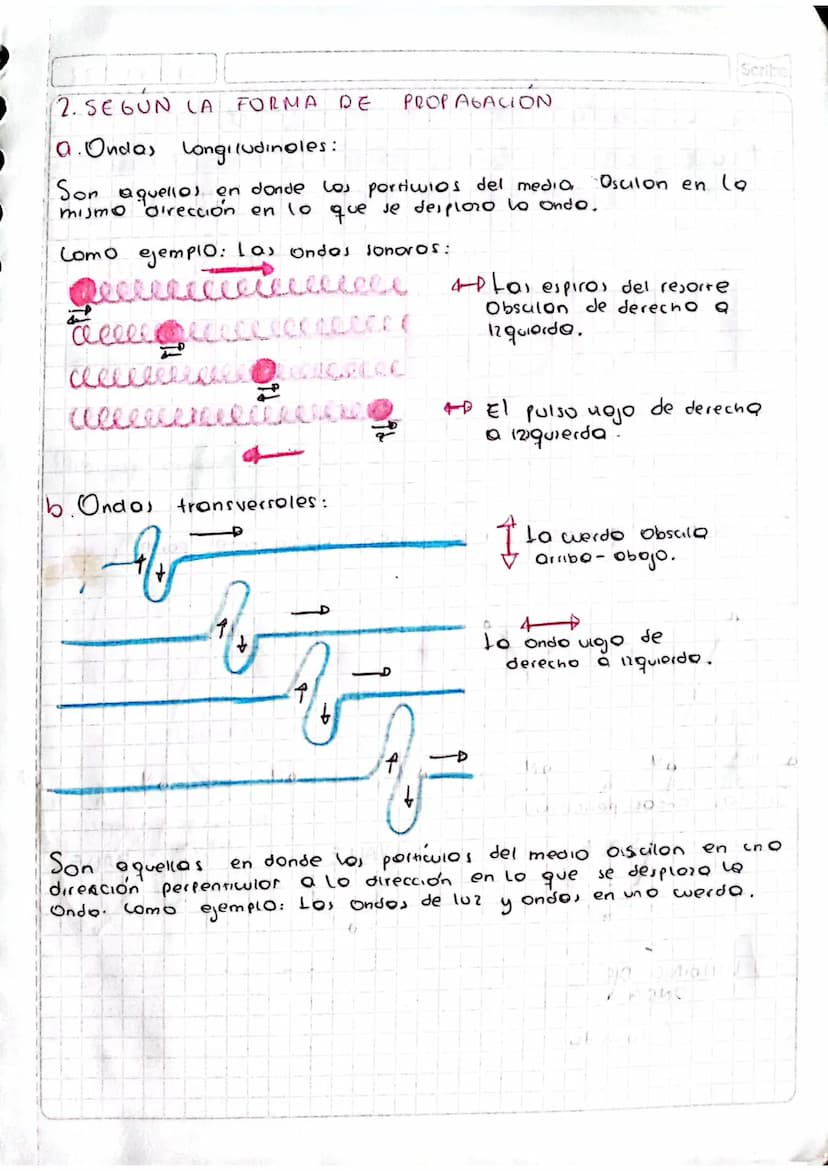 Scribe
2. SEGÚN LA FORMA DE PROPAGACIÓN
a. Ondas Longitudinales:
Son aquellas en donde las particulas del media Osculan en la
mismo dirección en la que se desplaza la onda.
Como ejemplo: Las ondas sonoras:
Las espiras del resorte
Obsculan de derecha a
Izquierda.
El pulso viaja de derecha
a izquierda.
b. Ondas transversales:
La cuerda Obscila
arriba-abajo.
La onda viaja de
derecha a izquierda.
Son aquellas en donde las particulas del medio oscilan en una
dirección perpenticular a la dirección en la que se desplaza la
Onda. Como ejemplo: Las ondas de luz y ondas en una cuerda.